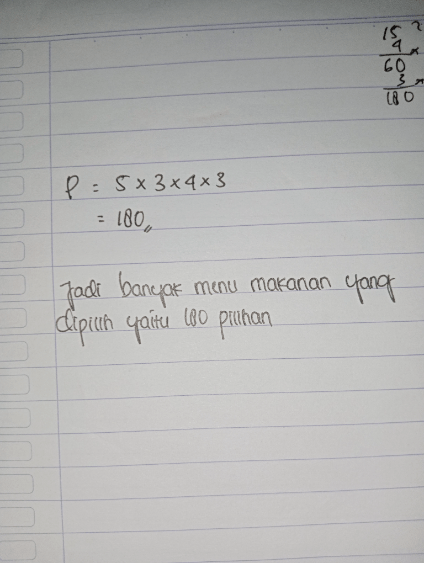 15
4 x
60
3 x
180
P = 5 x 3 x 4 x 3
= 180,,
Jadi banyak menu makanan yang
dipilih yaitu 180 pilihan